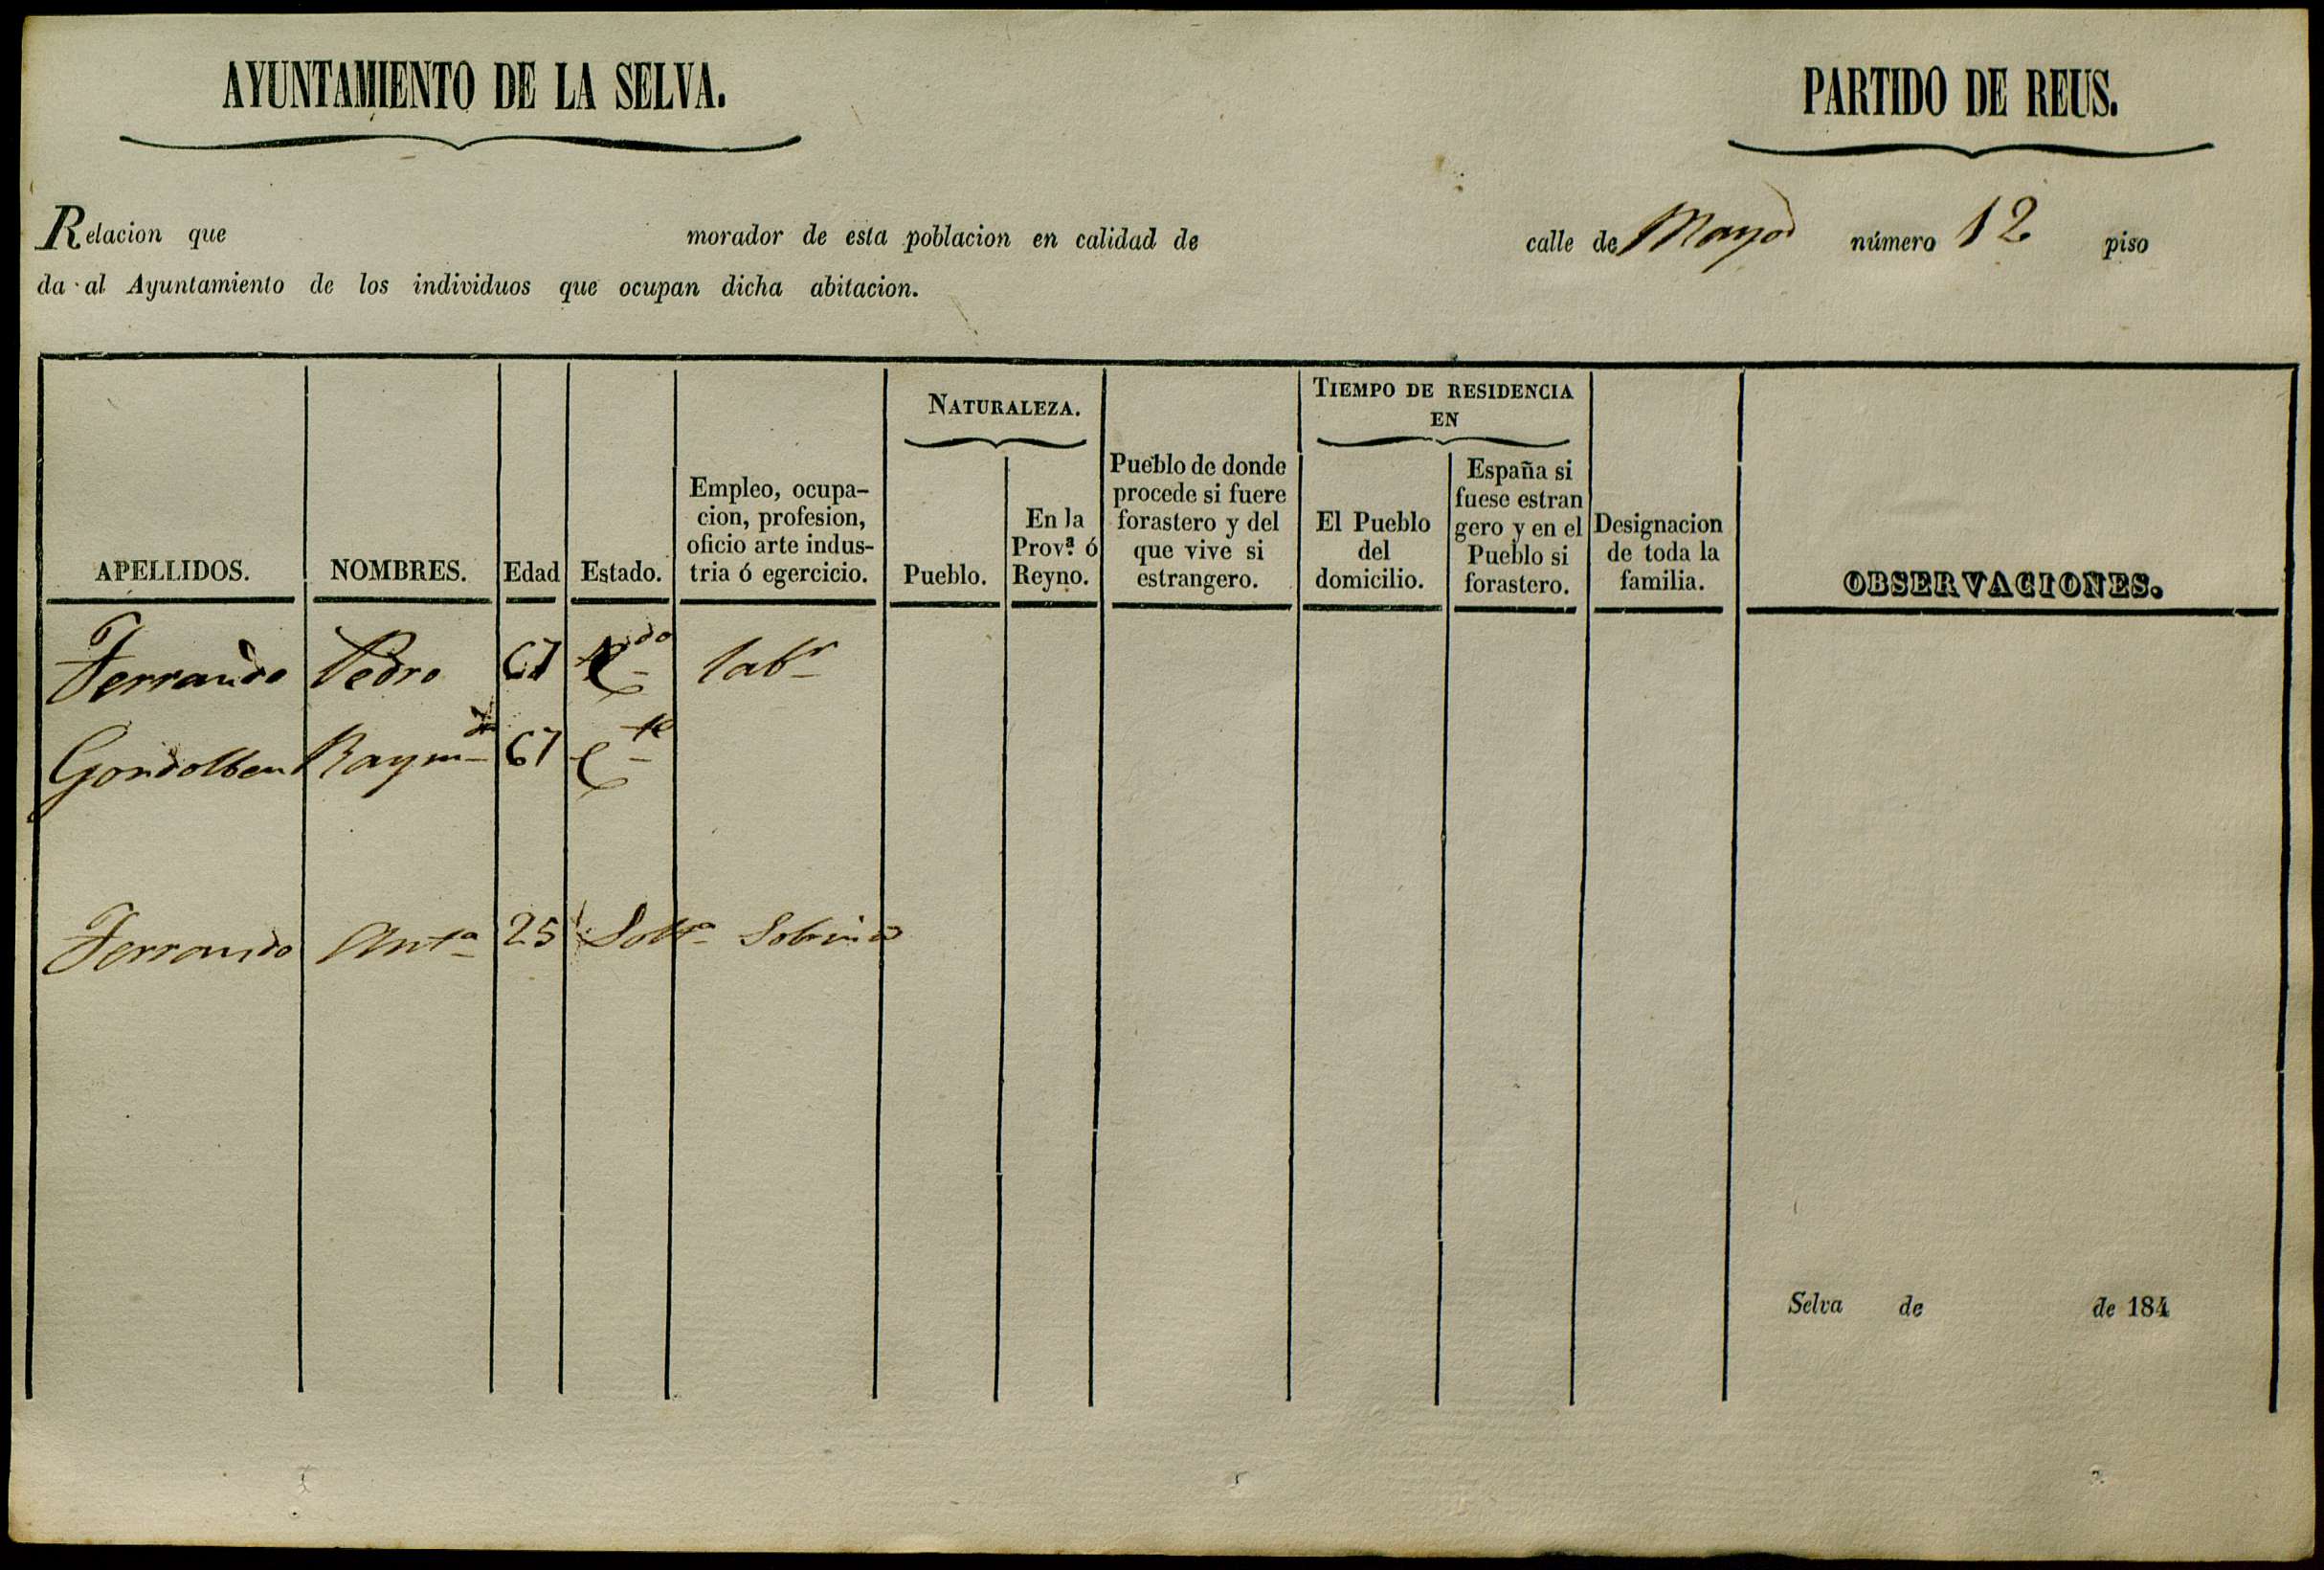 AYUNTAMIENTO DE LA SELVA.
PARTIDO DE REUS.
Relacion que morador de esta poblacion en calidad de calle de Mayor número 12 piso
da al Ayuntamiento de los individuos que ocupan dicha abitacion.
APELLIDOS.
NOMBRES.
Edad
Estado.
Empleo, ocupa-
cion, profesion,
oficio arte indus-
tria ó egercicio.
NATURALEZA.
Pueblo.
En la
Prov.ª ó
Reyno.
Pueblo de donde
procede si fuere
forastero y del
que vive si
estrangero.
TIEMPO DE RESIDENCIA
EN
El Pueblo
del
domicilio.
España si
fuese estran
gero y en el
Pueblo si
forastero.
Designacion
de toda la
familia.
OBSERVACIONES.
Ferrando Pedro 67 labr
Raymda 67
Ferrando Anta 25 Solta Sobrina
Selva de de 184